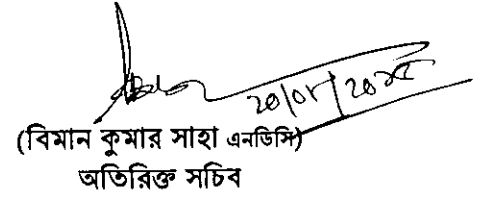 ২০/০৮/২০২৫
(বিমান কুমার সাহা এনডিসি)
অতিরিক্ত সচিব